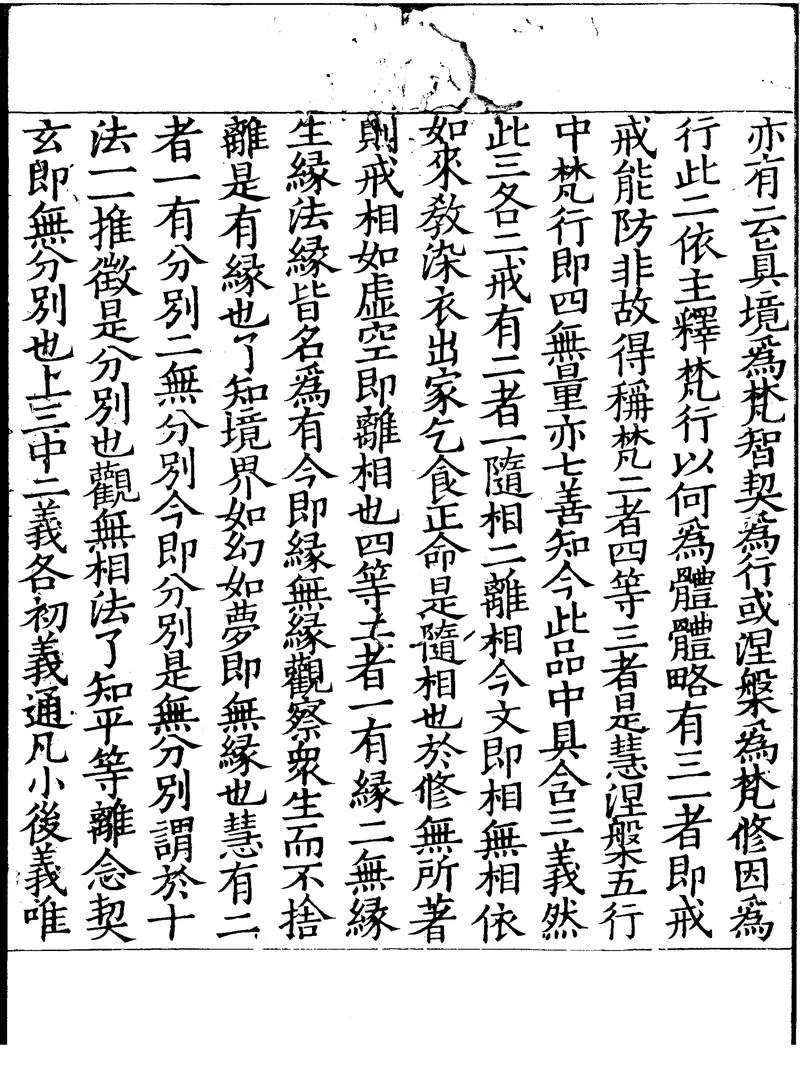 亦有云真境爲梵智契爲行或涅槃爲梵修因爲
行此二依主釋梵行以何爲體體略有三一者即戒
戒能防非故得稱梵二者四等三者是慧涅槃五行
中梵行即四無量亦七善知今此品中具含三義然
此三各二戒有二者一隨相二離相今文即相無相依
如來教染衣出家乞食正命是隨相也於修無所著
則戒相如虛空即離相也四等二者一有緣二無緣
生緣法緣皆名爲有今即緣無緣觀察衆生而不捨
離是有緣也了知境界如幻如夢即無緣也慧有二
者一有分別二無分別今即分別是無分別謂於十
法一一推徵是分別也觀無相法了知平等離念契
玄即無分別也上三中二義各初義通凡小後義唯